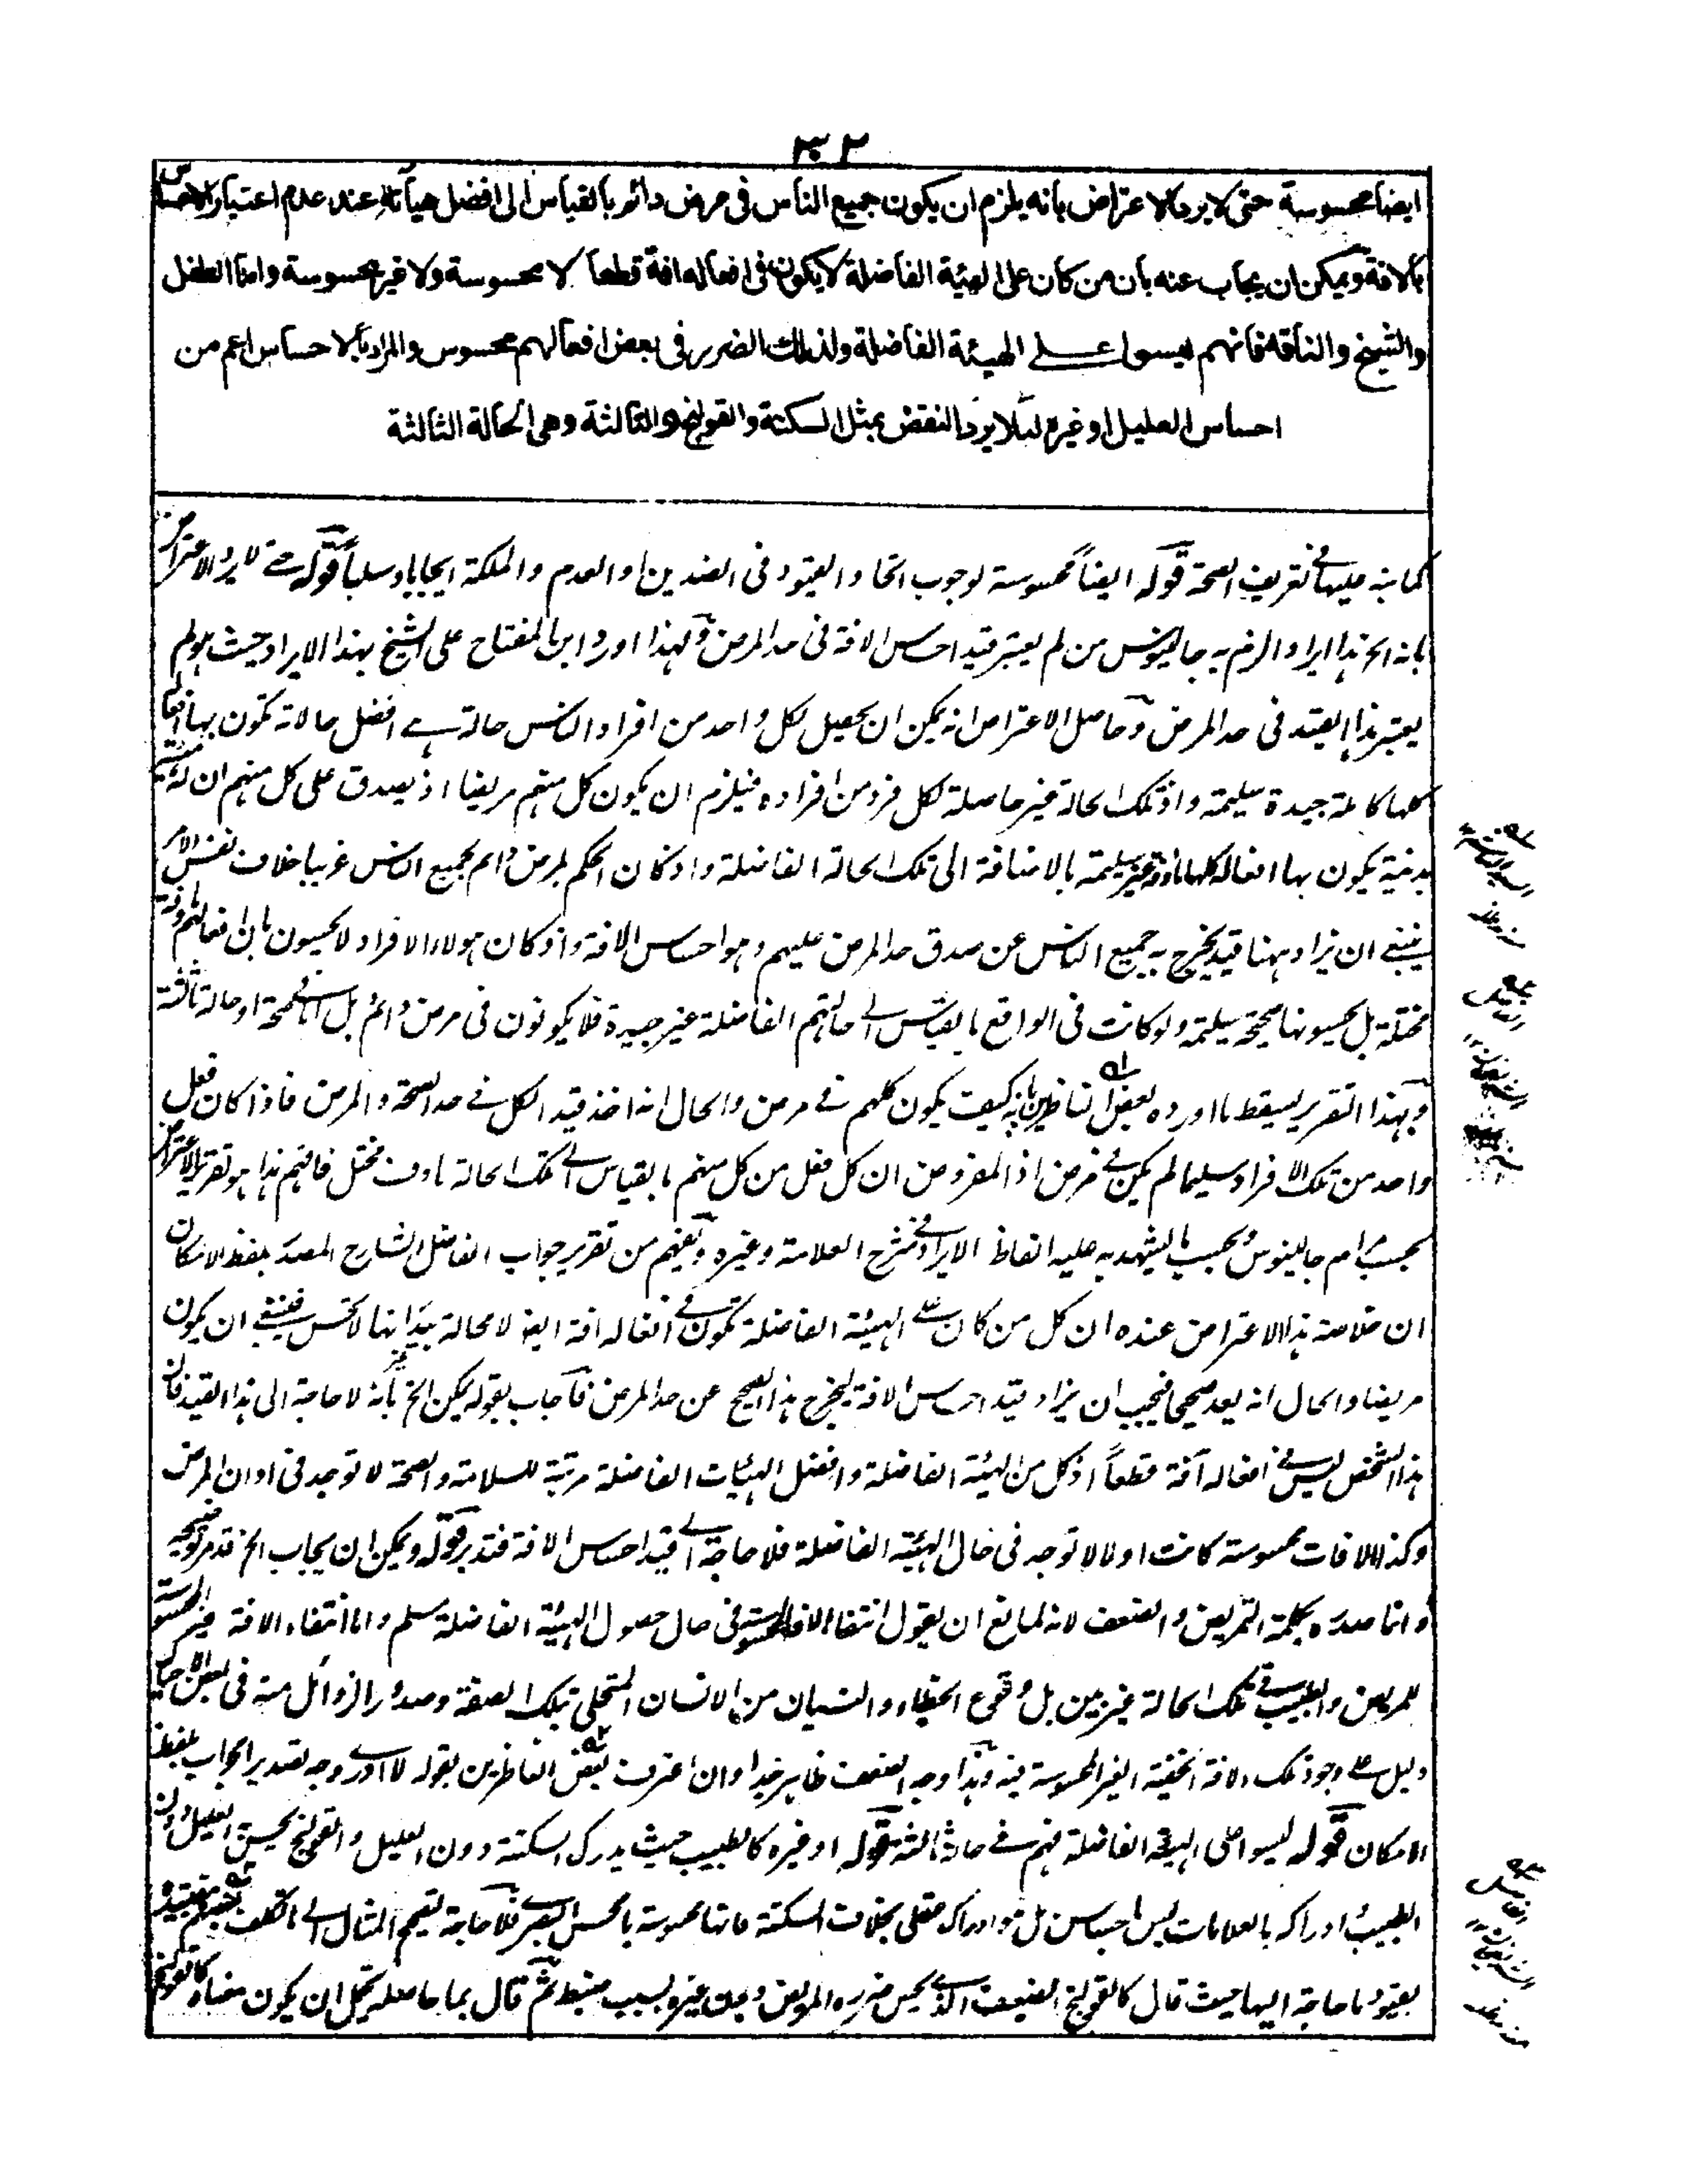 ٣٢
ايضا محسوسة حتى لا يرد الاعتراض بانه يلزم ان يكون جميع الناس فى مرض دائم بالقياس الى افضل هيآته عند عدم اعتبار الاحساس
بالافة ويمكن ان يجاب عنه بان من كان على الهيئة الفاضلة لا يكون فى افعاله افة قطعا لا محسوسة ولا غير محسوسة واما الطفل
والشيخ والناقه فانهم ليسوا على الهيئة الفاضلة ولذلك الضرر فى بعض افعالهم محسوس والمراد بالاحساس اعم من
احساس العليل او غيره لئلا يرد النقض بمثل السكتة والقولنج والثالثة وهى الحالة الثالثة
كما نبه عليها فى تعريف الصحة قوله ايضاً محسوسة لوجوب اتحاد القيود فى الضدين او العدم والملكة ايجابا وسلباً قوله حتى لا يرد الاعتراض
بانه الخ هذا ايراد الزم به جالينوس من لم يعتبر قيد احساس الافة فى حد المرض ولهذا اورد ابن المفتاح على الشيخ بهذا الايراد حيث هو لم
يعتبر هذا القيد فى حد المرض وحاصل الاعتراض انه يمكن ان يحصل لكل واحد من افراد الناس حالة هى افضل حالاته تكون بها افعاله
كلها كاملة جيدة سليمة واذ تلك الحالة غير حاصلة لكل فرد من افراده فيلزم ان يكون كل منهم مريضا اذ يصدق على كل منهم ان له هيئة
بدنية يكون بها افعاله كلها ماوفة غير سليمة بالاضافة الى تلك الحالة الفاضلة واذ كان الحكم لمرض دائم لجميع الناس غريبا خلاف نفس الامر
ينبغى ان يزاد ههنا قيد يخرج به جميع الناس عن صدق حد المرض عليهم وهو احساس الافة واذ كان هولاء الافراد لا يحسون بان افعالهم ماوفة
مختلة بل يحسونها صحيحة سليمة ولو كانت فى الواقع بالقياس الى حالتهم الفاضلة غير جيدة فلا يكونون فى مرض دائم بل لهم صحة او حالة ثالثة
وبهذا التقرير يسقط ما اورده بعض الناظرين بانه كيف يكون كلهم فى مرض والحال انه اخذ قيد الكل فى حد الصحة والمرض فاذا كان فعل
واحد من تلك الافراد سليما لم يكن فى مرض اذ المفروض ان كل فعل من كل منهم بالقياس الى تلك الحالة ماوف مختل فافهم هذا هو تقرير الاعتراض
بحسب مرام جالينوس وبحسب ما يشهد به عليه الفاظ الايراد فى شرح العلامة وغيره ويفهم من تقرير جواب الفاضل الشارح المصدر بلفظ الامكان
ان خلاصة هذا الاعتراض عنده ان كل من كان على الهيئة الفاضلة تكون فى افعاله افة ايضا لا محالة بيد انها لا تحس فينبغى ان يكون
مريضا والحال انه يعد صحيحا فيجب ان يزاد قيد احساس الافة ليخرج هذا الصحيح عن حد المرض فاجاب بقوله يمكن الخ بانه لا حاجة الى هذا القيد فان
هذا الشخص ليس فى افعاله آفة قطعاً اذ كل من الهيئة الفاضلة وافضل الهيئات الفاضلة مرتبة للسلامة والصحة لا توجد فى اوان المرض
وكذا الافات محسوسة كانت اولا لا توجد فى حال الهيئة الفاضلة فلا حاجة الى قيد احساس الافة فتدبر قوله ويمكن ان يجاب الخ قد مر توضيحه
وانما صدره بكلمة التمريض والضعف لانه لمانع ان يقول انتفاء الافة المحسوسة فى حال حصول الهيئة الفاضلة مسلم واما انتفاء الافة غير المحسوسة
للمريض والطبيب فى تلك الحالة غير بين بل وقوع الخطاء والنسيان من الانسان المتحلى بتلك الصفة وصدور الرذائل منه فى بعض الاحيان
دليل على وجود تلك الافة الخفية الغير المحسوسة فيه وهذا وجه الضعف ظاهر جدا وان اعترف بعض الناظرين بقوله لا ادرى وجه تصدير الجواب بلفظ
الامكان قوله ليسوا على الهيئة الفاضلة فهم فى حالة ثالثة قوله او غيره كالطبيب حيث يدرك السكتة دون العليل والقولنج يحسه العليل دون
الطبيب وادراكه بالعلامات ليس احساس بل هو ادراك عقلى بخلاف السكتة فانها محسوسة بالحس البصرى فلا حاجة لتصحيح المثال الى التكلف
بقيود ما حاجة اليها حيث قال كالقولنج الضعيف الذى يحس ضرره المريض دون غيره بسبب ضبط ثم قال بما حاصله يحتمل ان يكون معناه كالقولنج